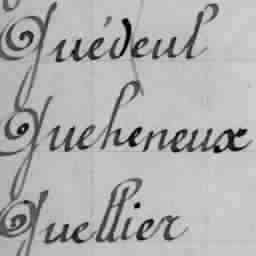 Quédeul
Queheneux
Quellier